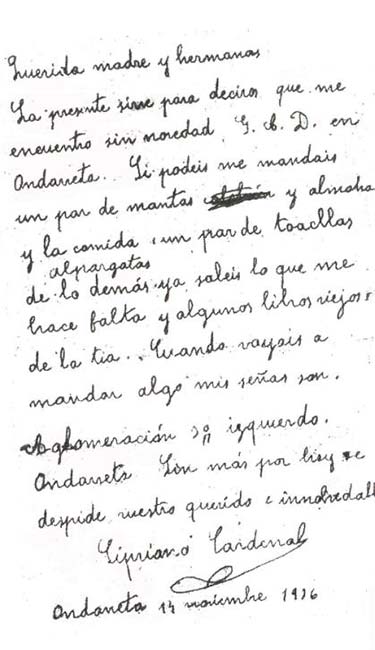 Querida madre y hermanas
La presente sirve para deciros que me
encuentro sin novedad G. A. D. en
Ondarreta. Si podeis me mandais
un par de mantas y almoha
y la comida, un par de toacllas
alpargatas
de lo demás ya sabeis lo que me
hace falta y algunos libros viejos
de la tia. Cuando vayais a
mandar algo mis señas son.
Aglomeración izquierdo.
Ondarreta Sin más por hoy se
despide vuestro querido e innolvedabl
Cipriano Cardenal
Ondarreta 14 noviembre 1936